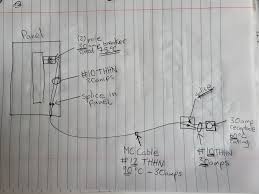 Panel
(2) pole
breaker
#10 THHN
30 amps
Splice in
Panel
MC Cable
#12 THHN
90°C - 30amps
#10 THHN
30amps
30amp
receptacle